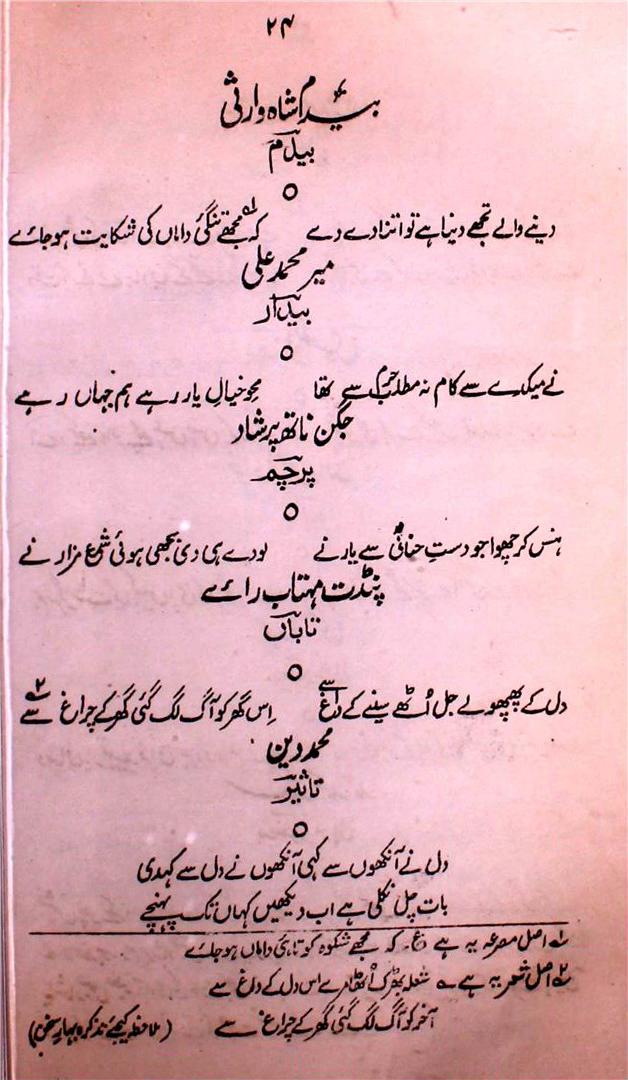 ۲۴
بیدم شاہ وارثی
بیدم
دینے والے تجھے دینا ہے تو اتنا دے دے کہ مجھے تنگئ داماں کی شکایت ہو جائے ۱
میر محمد علی
بیدار
نے میکدے سے کام نہ مطلب حرم سے تھا محوِ خیالِ یار رہے ہم جہاں رہے
جگن ناتھ پرشاد
پرچم
ہنس کر چھوا جو دستِ حنائی سے یار نے لو دے ہی دی بجھی ہوئی شمع مزار نے
پنڈت مہتاب رائے
تاباں
دل کے پھپھولے جل اُٹھے سینے کے داغ سے اِس گھر کو آگ لگ گئی گھر کے چراغ سے ۲
محمد دین
تاثیر
دل نے آنکھوں سے کہی آنکھوں نے دل سے کہدی
بات چل نکلی ہے اب دیکھیں کہاں تک پہنچے
۱ اصل مصرعہ یہ ہے ع۔ کہ مجھے شکوہ کوتاہئ داماں ہو جائے
۲ اصل شعر یہ ہے ؎ شعلہ بھڑک اُٹھا مرے اس دل کے داغ سے
آخر کو آگ لگ گئی گھر کے چراغ سے (ملاحظہ کیجئے تذکرہ بہارِ سخن)